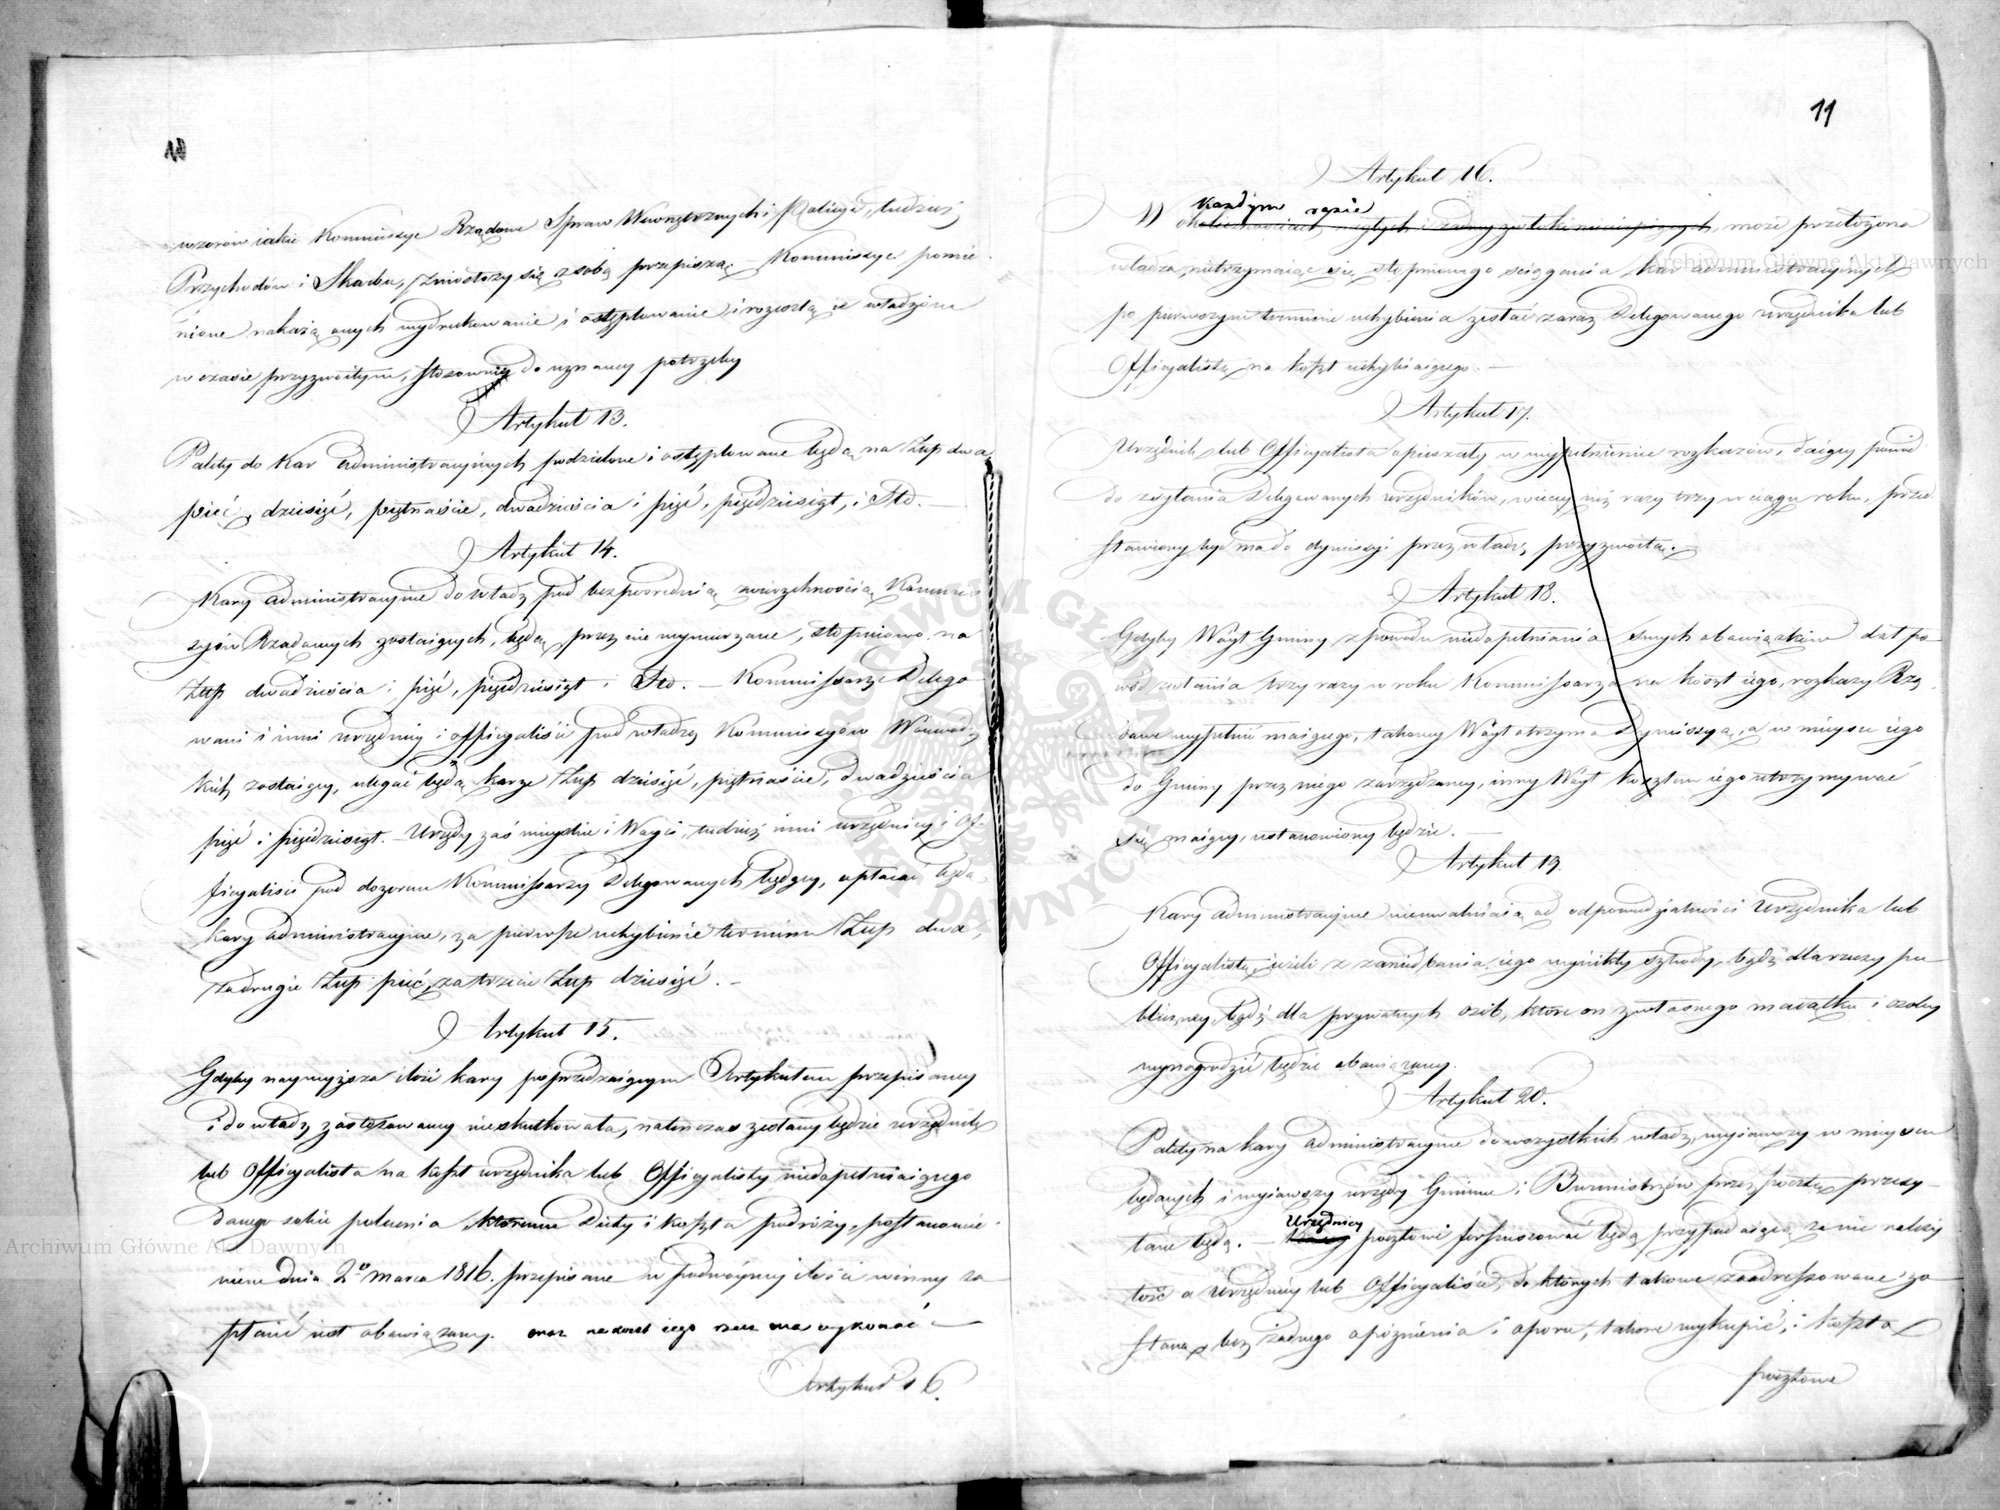 10
wzorów iakie Kommissye Rządowe Spraw Wewnętrznych i Policyi, tudzież
Przychodów i Skarbu, zniosłszy się z sobą przepiszą. – Kommissye pomie-
nione nakażą onych wydrukowanie i ostęplowanie i rozeszlą ie władzom
w czasie przyzwoitym, stosownie do uznaney potrzeby
Artykuł 13.
Palety do Kar Administracyinych podzielone i ostęplowane będą na Złp dwa,
pięć, dziesięć, piętnaście, dwadzieścia i pięć, pięćdziesiąt, i Sto. –
Artykuł 14.
Kary administracyine do władz pod bezpośrednią zwierzchnością Kommis-
syów Rządowych zostaiących, będą przez nie wymierzane, stopniowo na
Złp dwadzieścia i pięć, pięćdziesiąt i Sto. – Kommissarze Delego
wani i inni urzędnicy i officyaliści pod władzą Kommissyów Woiewódz
kich zostaiący, ulegać będą karze Złp dziesięć, piętnaście, dwadzieścia
pięć i pięćdziesiąt. – Urzędy zaś mieyskie i Wóyci, tudzież inni urzędnicy i Of-
ficyaliści pod dozorem Kommissarzy Delegowanych będący, opłacać będą
kary administracyine, za pierwsze uchybienie terminu Złp dwa,
za drugie Złp pięć, za trzecie Złp dziesięć. –
Artykuł 15.
Gdyby naywyższa ilość kary poprzedzaiącym Artykułem przepisaney
i do władz zastosowaney nieskutkowała, natenczas zesłany będzie urzędnik
lub Officyalista na koszt urzędnika lub Officyalisty niedopełniaiącego
danego sobie polecenia, któremu Diety i koszta podróży, postanowie-
niem dnia 2go Marca 1816. przepisane w podwóyney ilości winny za
płacić iest obowiązany. oraz na koszt iego rzecz ma wykonać –
Artykuł 16.
11
Artykuł 16.
W każdym razie
okolicznościach nagłych i żadney zwłoki niecierpiących, może przełożona
władza, nietrzymaiąc się stopniowego ściągania kar administracyinych
po pierwszym terminie uchybienia zesłać zaraz Delegowanego urzędnika lub
Officyalistę na koszt uchybiaiącego. –
Artykuł 17.
Urzędnik lub Officyalista opieszały w wypełnieniu rozkazów, daiący powód
do zesłania Delegowanych urzędników, więcey niż razy trzy w ciągu roku, przed
stawiony być ma do dymissyi przez władzę przyzwoitą. –
Artykuł 18.
Gdyby Wóyt Gminy z powodu niedopełniania swych obowiązków dał po-
wód zesłania trzy razy w roku Kommissarza na koszt iego, rozkazy Rzą
dowe wypełnić maiącego, takowy Wóyt otrzyma Dymissyą, a w mieysce iego
do Gminy przez niego zarządzaney, inny Wóyt kosztem iego utrzymywać
się maiący, ustanowiony będzie. –
Artykuł 19.
Kary administracyine nieuwalniaią od odpowiedzialności Urzędnika lub
Officyalistę, ieżeli z zaniedbania iego wynikły szkody, bądź dla rzeczy pu-
bliczney, bądź dla prywatnych osób, które on z własnego maiątku i osoby
wynagrodzić będzie obowiązany.
Artykuł 20.
Palety na kary administracyine do wszystkich władz, wyiąwszy w mieyscu
będących i wyiąwszy urzędy Gminne i Burmistrzów przez pocztę przesy-
łane będą. – Urzędnicy pocztowi forszusować będą przypadaiącą za nie należy
tość a Urzędnicy lub Officyaliści, do których takowe zaadressowane zo-
staną, bez żadnego opóźnienia i oporu, takowe wykupić, i koszta
pocztowe
Archiwum Główne Akt Dawnych
Archiwum Główne Akt Dawnych
ARCHIWUM GŁÓWNE AKT DAWNYCH